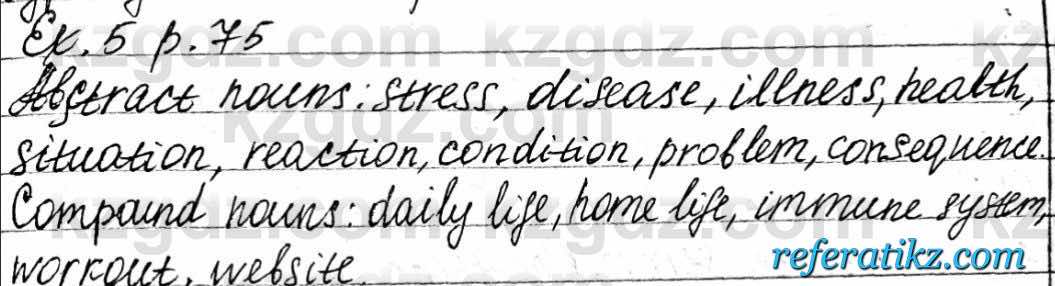 Ex. 5 p. 75
Abstract nouns: stress, disease, illness, health,
situation, reaction, condition, problem, consequence.
Compound nouns: daily life, home life, immune system,
workout, website.
kzgdz.com
referatikz.com